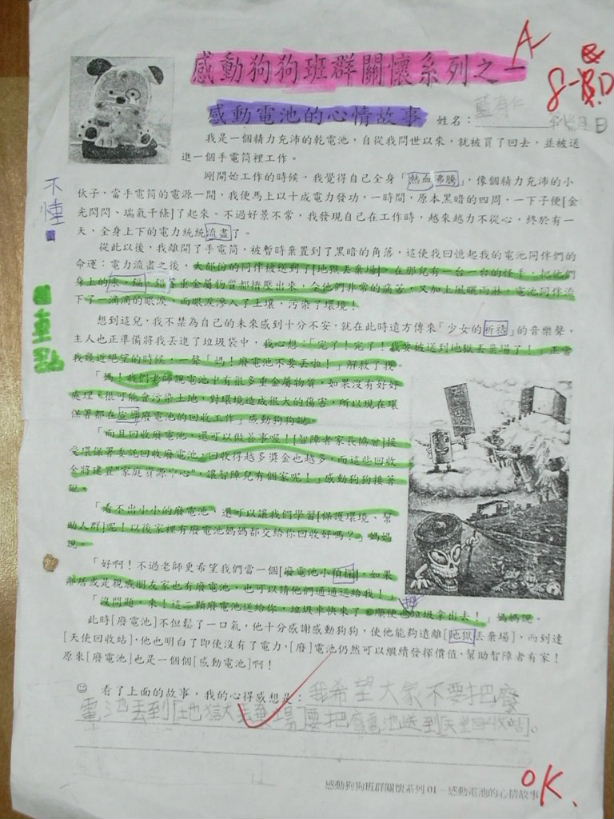 感動狗狗班群關懷系列之一
A
感動電池的心情故事
姓名：
我是一個精力充沛的乾電池，自從我問世以來，就被買了回去，並被送
進一個手電筒裡工作。
剛開始工作的時候，我覺得自己全身「熱血沸騰」，像個精力充沛的小
伙子，當手電筒的電源一開，我便馬上以十成電力發功，一時間，原本黑暗的四周，一下子便[金
光閃閃，瑞氣千條]了起來。不過好景不常，我發現自己在工作時，越來越力不從心，終於有一
天，全身上下的電力統統流盡了。
不懂
從此以後，我離開了手電筒，被暫時棄置到了黑暗的角落，這使我回憶起我的電池同伴們的
命運：電力流盡之後，大部份的同伴被送到了[地獄丟棄場]，在那兒有一台一台的怪手，把他們
重金屬物質都擠壓出來，令他們非常的痛苦，又加上風曬雨淋，電池同伴流
下了一滴滴的眼淚，而眼淚滲入了土壤，污染了環境！
重點
想到這兒，我不禁為自己的未來感到十分不安，就在此時遠方傳來「少女的祈禱」的音樂聲，
主人也正準備將我丟進了垃圾袋中，我心想：「完了！完了！我要被送到地獄丟棄場了！」
最近絕望的時候，一聲「媽！廢電池不要丟啦！」解救了我。
「媽！我們老師說電池中有很多重金屬物質，如果沒有好好
處理，很可能會污染土地，對環境造成很大的傷害，所以現在環
保署都在宣導廢電池的回收工作」感動狗狗說。
「而且回收廢電池，還可以做善事呢！[智障者家長協會]接
受環保署委託回收廢電池，回收得越多獎金也越多，而這些回收
「看不出小小的廢電池，還可以讓我們學習[保護環境、幫
助人群]呢！以後家裡有廢電池媽媽都交給你回收好嗎？」媽媽
說。
「好啊！不過老師更希望我們當一個[廢電池小偵探]，如果
鄰居或是親戚朋友家也有廢電池，也可以請他們通通送給我！」
「沒問題，來！這二顆廢電池送給你，垃圾車快來了，順便把垃圾拿出去！」媽媽說。
此時[廢電池]不但鬆了一口氣，他十分感謝感動狗狗，使他能夠遠離[地獄丟棄場]，而到達
[天使回收站]，他也明白了即使沒有了電力，[廢]電池仍然可以繼續發揮價值，幫助智障者有家！
原來[廢電池]也是一個個[感動電池]啊！
☺ 看了上面的故事，我的心得感想是：我希望大家不要把廢
電池丟到[地獄丟棄場]要把廢電池送到[天使回收站]。
感動狗狗班群關懷系列01－感動電池的心情故事
OK.